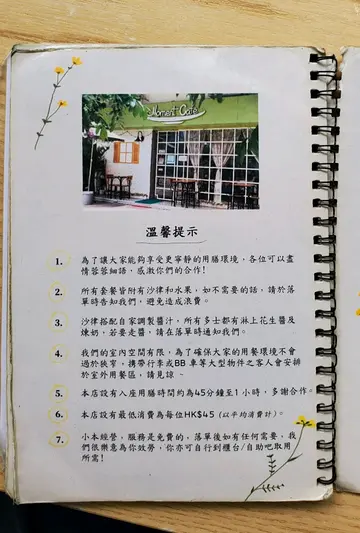 Moment Cafe
溫馨提示
1. 為了讓大家能夠享受更寧靜的用膳環境，各位可以盡
情蓉蓉細語，感激你們的合作！
2. 所有套餐皆附有沙律和水果，如不需要的話，請於落
單時告知我們，避免造成浪費。
3. 沙律搭配自家調製醬汁，所有多士都有淋上花生醬及
煉奶，若要走醬，請在落單時通知我們。
4. 我們的室內空間有限，為了確保大家的用餐環境不會
過於狹窄，攜帶行李或BB 車等大型物件之客人會安排
於室外用餐區，請見諒~
5. 本店設有入座用膳時間約為45分鐘至1 小時，多謝合作。
6. 本店設有最低消費為每位HK$45 (以平均消費計)。
7. 小本經營，服務是免費的，落單後如有任何需要，我
們很樂意為你效勞，你亦可自行到櫃台/自助吧取用
所需！